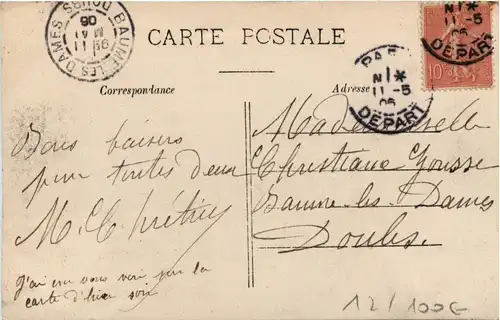 BAUME-LES-DAMES
DOUBS
11
MAI
06
CARTE POSTALE
PARIS
11 - 5
06
DEPART
11 - 5
06
DEPART
10
Correspondance
Adresse
Bons baisers
pour toutes deux
M. Chrétien
J'ai cru vous voir sur la
carte d'hier soir
Mademoiselle
Christiane
Baume-les-Dames
Doubs.
12/100€